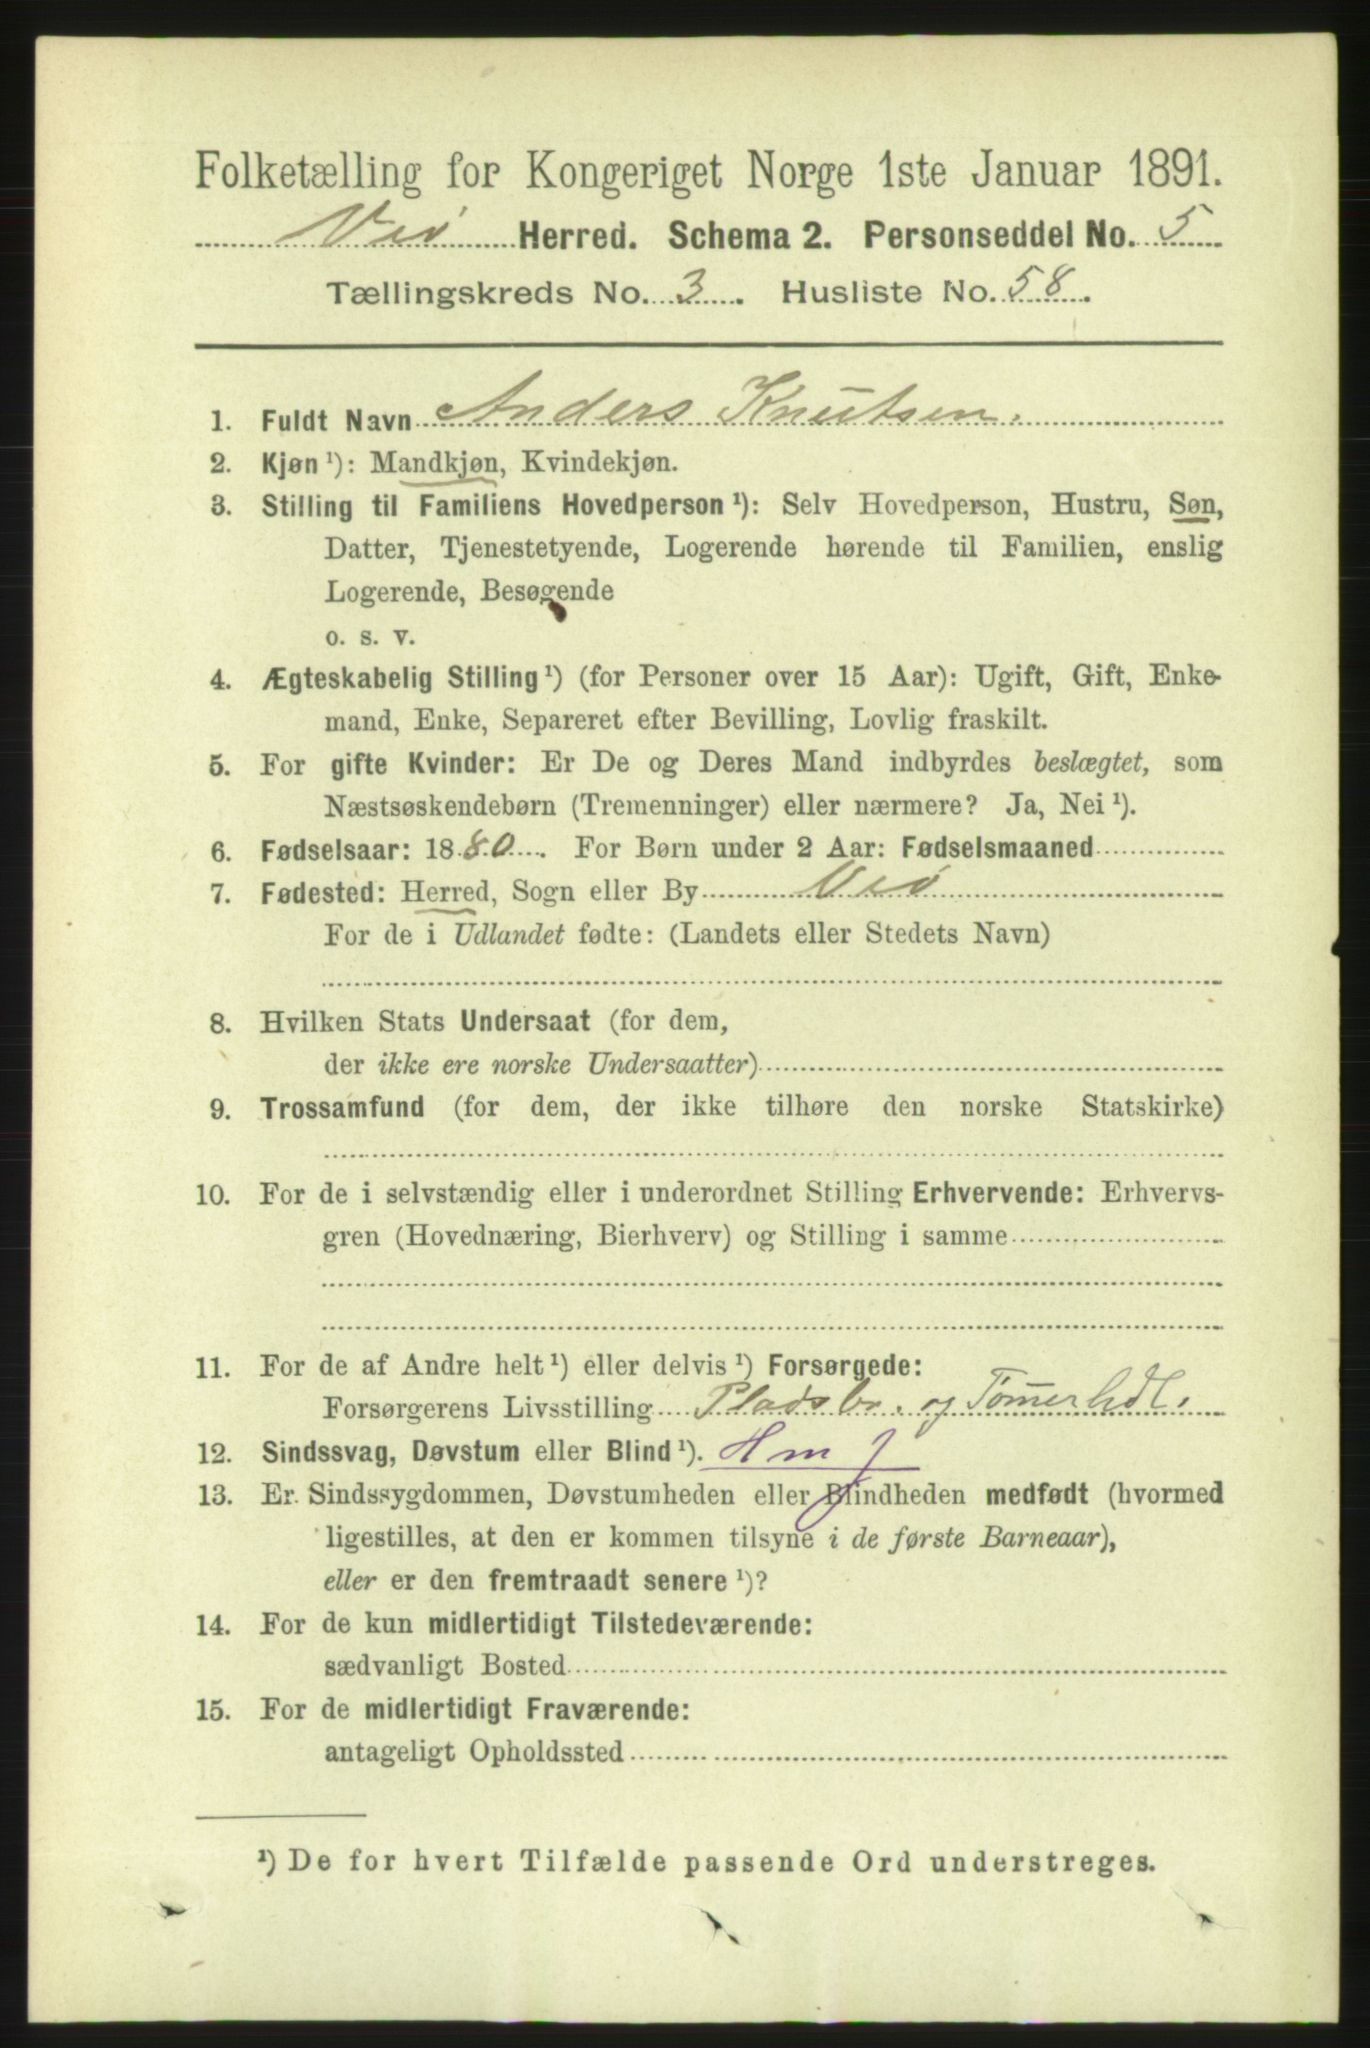 Folketælling for Kongeriget Norge 1ste Januar 1891.
Veø Herred. Schema 2. Personseddel No. 5
Tællingskreds No. 3. Husliste No. 58.
1. Fuldt Navn Anders Knutsen.
2. Kjøn ¹): Mandkjøn, Kvindekjøn.
3. Stilling til Familiens Hovedperson ¹): Selv Hovedperson, Hustru, Søn,
Datter, Tjenestetyende, Logerende hørende til Familien, enslig
Logerende, Besøgende
o. s. v.
4. Ægteskabelig Stilling ¹) (for Personer over 15 Aar): Ugift, Gift, Enke-
mand, Enke, Separeret efter Bevilling, Lovlig fraskilt.
5. For gifte Kvinder: Er De og Deres Mand indbyrdes beslægtet, som
Næstsøskendebørn (Tremenninger) eller nærmere? Ja, Nei ¹).
6. Fødselsaar: 1880. For Børn under 2 Aar: Fødselsmaaned
7. Fødested: Herred, Sogn eller By Veø
For de i Udlandet fødte: (Landets eller Stedets Navn)
8. Hvilken Stats Undersaat (for dem,
der ikke ere norske Undersaatter)
9. Trossamfund (for dem, der ikke tilhøre den norske Statskirke)
10. For de i selvstændig eller i underordnet Stilling Erhvervende: Erhvervs-
gren (Hovednæring, Bierhverv) og Stilling i samme
11. For de af Andre helt ¹) eller delvis ¹) Forsørgede:
Forsørgerens Livsstilling Pladsbr. og Tømerhdl.
12. Sindssvag, Døvstum eller Blind ¹). Hm f
13. Er Sindssygdommen, Døvstumheden eller Blindheden medfødt (hvormed
ligestilles, at den er kommen tilsyne i de første Barneaar),
eller er den fremtraadt senere ¹)?
14. For de kun midlertidigt Tilstedeværende:
sædvanligt Bosted
15. For de midlertidigt Fraværende:
antageligt Opholdssted
¹) De for hvert Tilfælde passende Ord understreges.